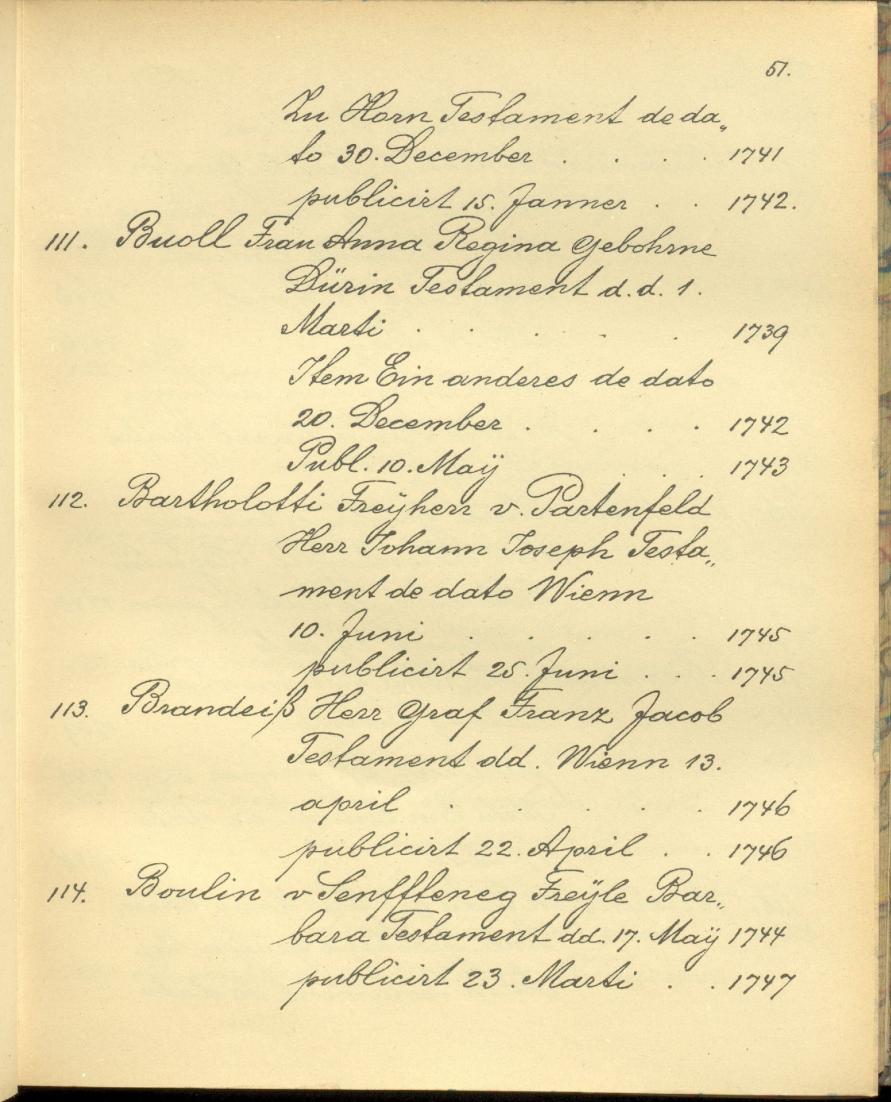 51.
Zu Horn Testament de da„
to 30. December . . . . 1741
publicirt 15. Janner . . 1742.
111. Buoll Frau Anna Regina Gebohrne
Dürin Testament d. d. 1.
Marti . . . . . 1739
Item Ein anderes de dato
20. December . . . . 1742
Publ. 10. Maÿ . . . 1743
112. Bartholotti Freÿherr v. Partenfeld
Herr Johann Joseph Testa„
ment de dato Wienn
10. Juni . . . . . 1745
publicirt 25. Juni . . . 1745
113. Brandeiß Herr Graf Franz Jacob
Testament dd. Wienn 13.
april . . . . . 1746
publicirt 22. April . . 1746
114. Boulin v Senffteneg Freÿle Bar„
bara Testament dd. 17. Maÿ 1744
publicirt 23. Marti . . 1747